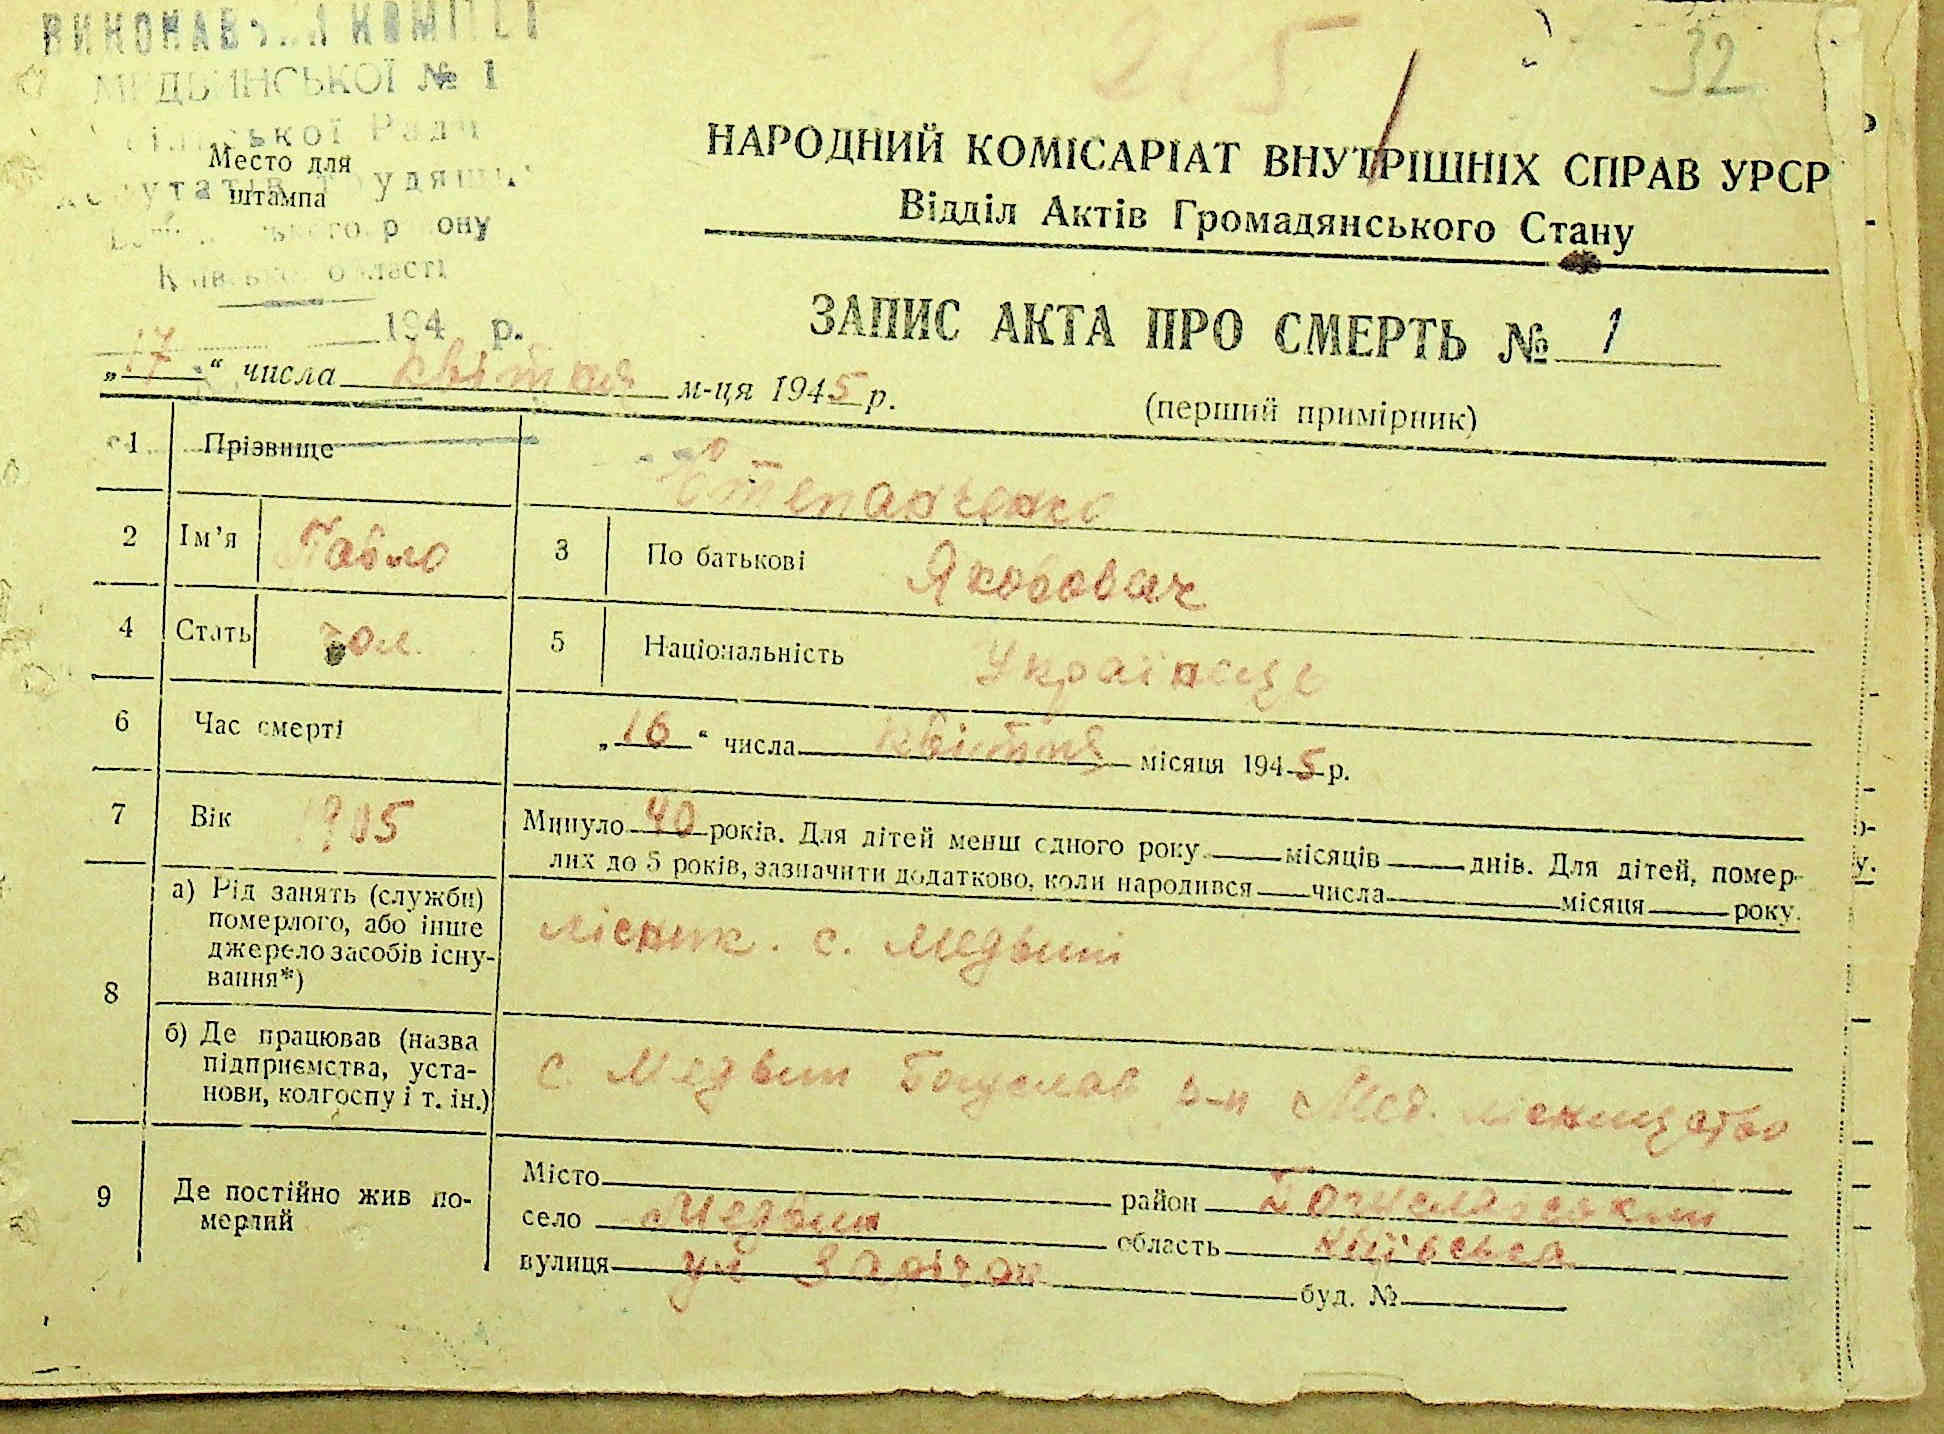 ВИКОНАВ КОМІТЕТ
МЕДВИНСЬКОЇ № 1
сільської Ради
Место для
депутатів Трудящих
штампа
району
Київської області
194 р.
32
НАРОДНИЙ КОМІСАРІАТ ВНУТРІШНІХ СПРАВ УРСР
Відділ Актів Громадянського Стану
ЗАПИС АКТА ПРО СМЕРТЬ № 1
(перший примірник)
„17“ числа квітня м-ця 1945 р.
1 Прізвище Степанченко
2 Ім’я Павло 3 По батькові Якович
4 Стать чол. 5 Національність Українець
6 Час смерті „16“ числа квітня місяця 1945 р.
7 Вік 1905 Минуло 40 років. Для дітей менш одного року місяців днів. Для дітей, помер-
лих до 5 років, зазначити додатково, коли народився числа місяця року.
8 а) Рід занять (служби)
померлого, або інше
джерело засобів існу-
вання*)
лісник. с. Медвин
б) Де працював (назва
підприємства, уста-
нови, колгоспу і т. ін.)
с. Медвин Богуслав р-н Мед. лісництво
9 Де постійно жив по-
мерлий
Місто район Богуславський
село Медвин область Київська
вулиця ул буд. №